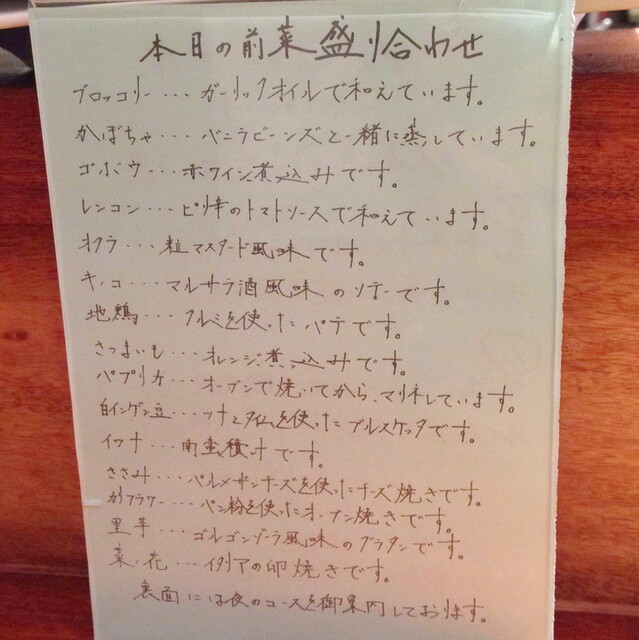 本日の前菜盛り合わせ
ブロッコリー・・・ガーリックオイルで和えています。
かぼちゃ・・・バニラビーンズと一緒に蒸しています。
ゴボウ・・・赤ワイン煮込みです。
レンコン・・・ピリ辛のトマトソースで和えています。
オクラ・・・粒マスタード風味です。
キノコ・・・マルサラ酒風味のソテーです。
地鶏・・・クルミを使ったパテです。
さつまいも・・・オレンジ煮込みです。
パプリカ・・・オーブンで焼いてから、マリネしています。
白インゲン豆・・・ツナとタイムを使ったブルスケッタです。
イワナ・・・南蛮積けです。
ささみ・・・パルメザンチーズを使ったチーズ焼きです。
カリフラワー・・・パン粉を使ったオーブン焼きです。
里芋・・・ゴルゴンゾーラ風味のグラタンです。
菜ノ花・・・イタリアの卵焼きです。
裏面には夜のコースを御案内しております。